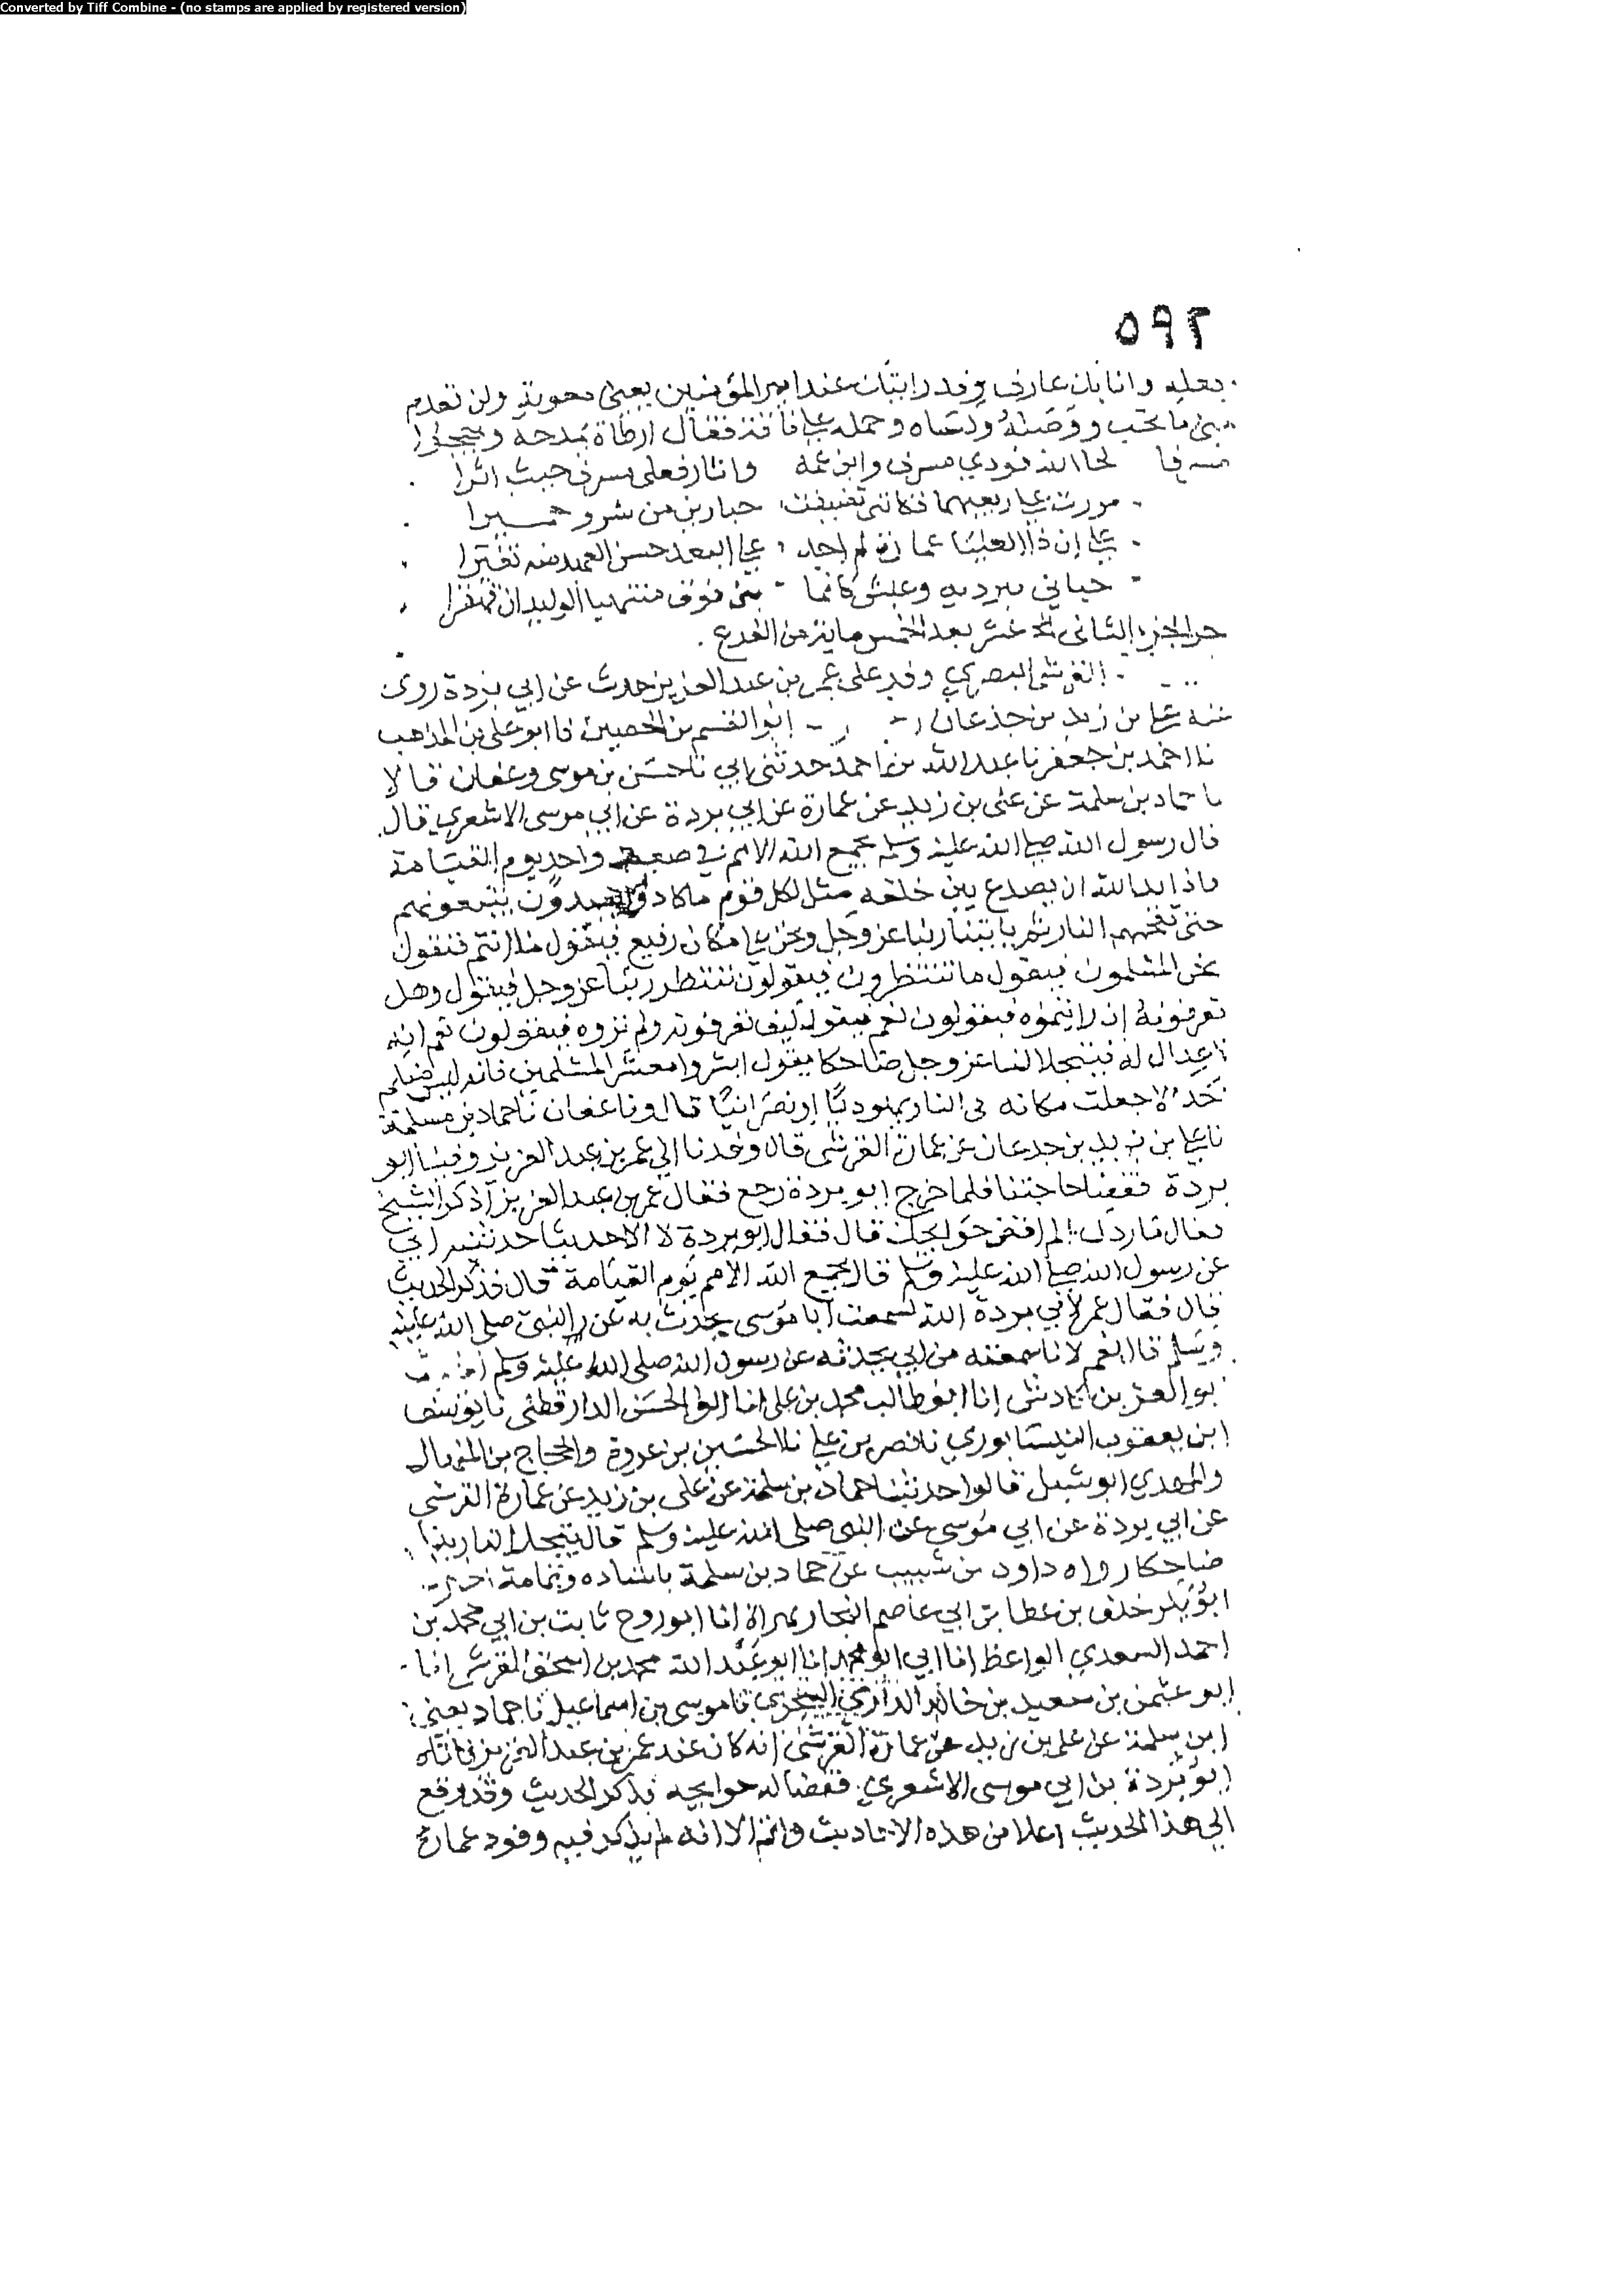 Converted by Tiff Combine - (no stamps are applied by registered version)
٥٩٢
وانا بان عارف وقد رايتان عند امير المؤمنين يعني معوية ولن تعدم
مني ما تحب ووصله وكساه وحمله على ناقة فقال ارطاة يمدحه ويهجوا
لحا الله فودي مسرف وابن عمه واثار فعلى مسرف حيث اثرا
مررت على ربعيهما فكانني مررت من
على ان ذا العليا عمارة لم اجد على البعد حسن العهد منه تغيرا
حباني ببرديه وعنس كانما بنى فوق متنيها الوليدان
اخر الجزء الثاني عشر بعد الخمس ماية من الفرع
القرشي البصري وفد على عمر بن عبد العزيز حدث عن ابي بردة روى
عنه على بن زيد بن جدعان ابو القسم بن الحصين نا ابو على بن المذهب
نا احمد بن جعفر نا عبد الله بن احمد حدثني ابي نا حسن بن موسى وعفان قالا
نا حماد بن سلمة عن على بن زيد عن عمارة عن ابي بردة عن ابي موسى الاشعري قال
قال رسول الله صلى الله عليه وسلم يجمع الله الامم في صعيد واحد يوم القيامة
فاذا بدا لله ان يصدع بين خلقه مثل لكل قوم ما كانوا يعبدون يتبعونهم
حتى تقحمهم النار ثم ياتينا ربنا عز وجل ونحن على مكان رفيع فيقول من انتم فنقول
نحن المسلمون فيقول ما تنتظرون فيقولون ننتظر ربنا عز وجل فيقول وهل
تعرفونه ان رايتموه فيقولون نعم فيقول كيف تعرفونه ولم تروه فيقولون نعم انه
لا عدل له فيتجلا لنا عز وجل ضاحكا يقول ابشروا معشر المسلمين فانه ليس منكم
احد الا جعلت مكانه في النار يهوديا او نصرانيا قال ونا عفان نا حماد بن سلمة
نا على بن زيد بن جدعان عن عمارة القرشي قال وفدنا الى عمر بن عبد العزيز وفينا ابو
بردة فقضا حاجتنا فلما خرج ابو بردة رجع فقال عمر بن عبد العزيز اذكر الشيخ
فقال ما ردك الم اقض حوايجك قال فقال ابو بردة لا الا حديثا حدثنيه ابي
عن رسول الله صلى الله عليه وسلم قال يجمع الله الامم يوم القيامة قال فذكر الحديث
قال فقال عمر لابي بردة الله لسمعت ابا موسى يحدث به عن النبي صلى الله عليه
وسلم قال نعم لانا سمعته من ابي يحدثه عن رسول الله صلى الله عليه وسلم
ابو العز بن كادش انا ابو طالب محمد بن على انا ابو الحسن الدارقطني نا يوسف
ابن يعقوب النيسابوري نا نصر بن علي نا الحسين بن عروة والحجاج بن المنهال
والمهدي ابو شبل قالوا حدثنا حماد بن سلمة عن على بن زيد عن عمارة القرشي
عن ابي بردة عن ابي موسى عن النبي صلى الله عليه وسلم قال يتجلا لنا ربنا
ضاحكا رواه داود بن شبيب عن حماد بن سلمة باسناده وتمامه
ابو بكر خلف بن عطا بن ابي عاصم النجار بهراة انا ابو روح ثابت بن ابي محمد بن
احمد السعدي الواعظ انا ابي ابو محمد انا ابو عبد الله محمد بن اسحق القرشي انا
ابو عثمن بن سعيد بن خالد الدارمي السجزي نا موسى بن اسماعيل نا حماد يعني
ابن سلمة عن على بن زيد عن عمارة القرشي انه كان عند عمر بن عبد العزيز فاتاه
ابو بردة بن ابي موسى الاشعري فقضا له حوايجه فذكر الحديث وقد وقع
الي هذا الحديث اعلا من هذه الاحاديث واتم الا انه لم يذكر فيه وفود عمارة